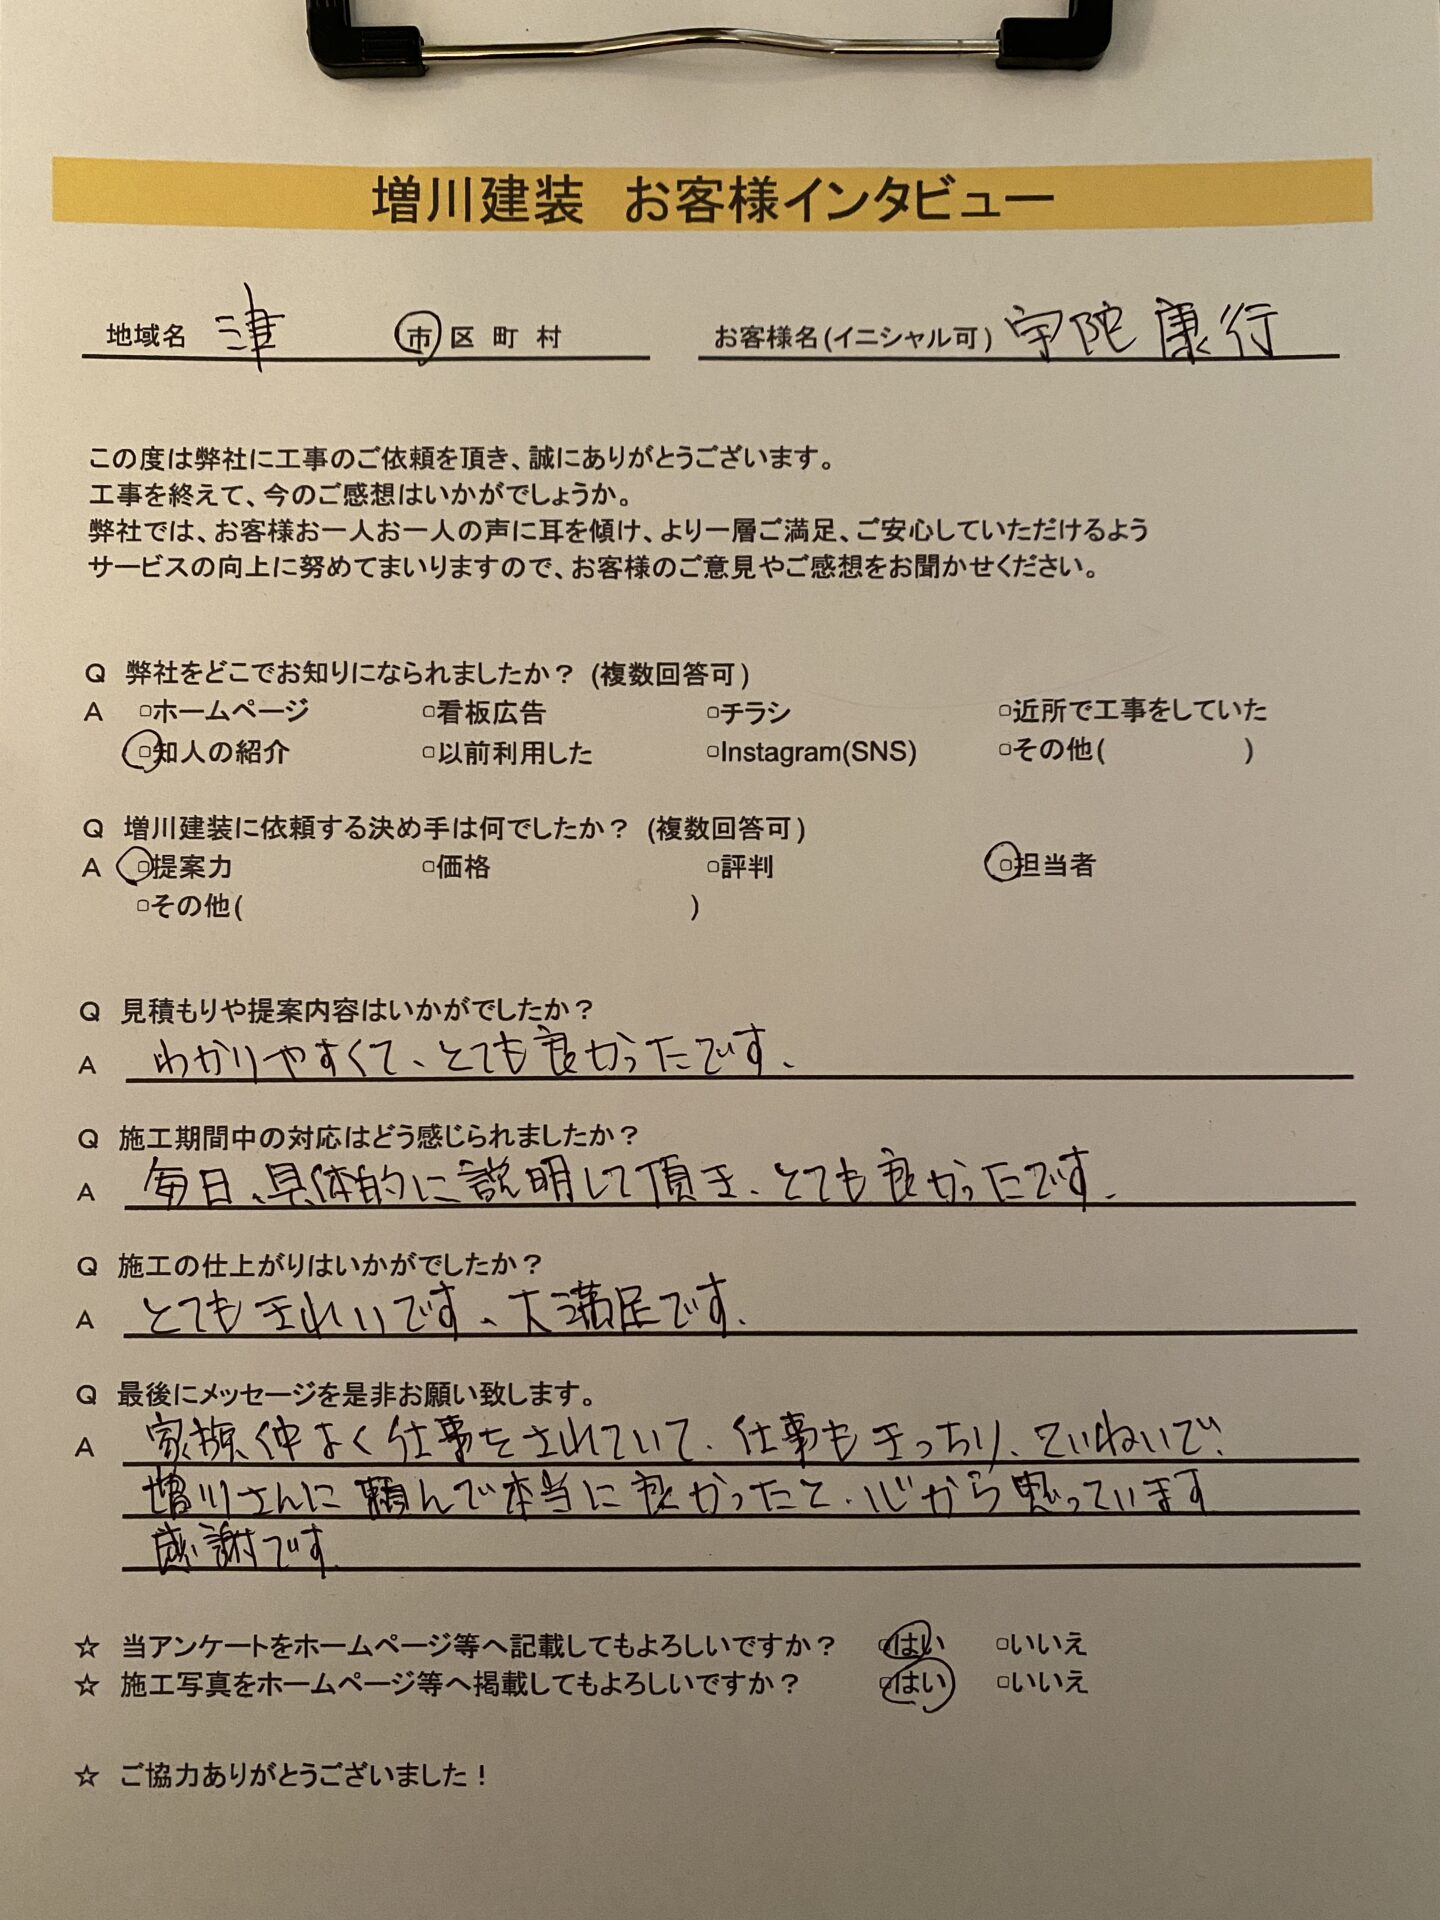 増川建装 お客様インタビュー
地域名 津 市 区 町 村 お客様名(イニシャル可) 宇陀 康行
この度は弊社に工事のご依頼を頂き、誠にありがとうございます。
工事を終えて、今のご感想はいかがでしょうか。
弊社では、お客様お一人お一人の声に耳を傾け、より一層ご満足、ご安心していただけるよう
サービスの向上に努めてまいりますので、お客様のご意見やご感想をお聞かせください。
Q 弊社をどこでお知りになられましたか？ (複数回答可)
A □ホームページ □看板広告 □チラシ □近所で工事をしていた
□知人の紹介 □以前利用した □Instagram(SNS) □その他( )
Q 増川建装に依頼する決め手は何でしたか？ (複数回答可)
A □提案力 □価格 □評判 □担当者
□その他( )
Q 見積もりや提案内容はいかがでしたか？
A わかりやすくて、とても良かったです。
Q 施工期間中の対応はどう感じられましたか？
A 毎日、具体的に説明して頂き、とても良かったです。
Q 施工の仕上がりはいかがでしたか？
A とてもきれいです、大満足です。
Q 最後にメッセージを是非お願い致します。
A 家族仲よく仕事をされていて、仕事もきっちり、ていねいで、
増川さんに頼んで本当に良かったと、心から思っています
感謝です。
☆ 当アンケートをホームページ等へ記載してもよろしいですか？ □はい □いいえ
☆ 施工写真をホームページ等へ掲載してもよろしいですか？ □はい □いいえ
☆ ご協力ありがとうございました！